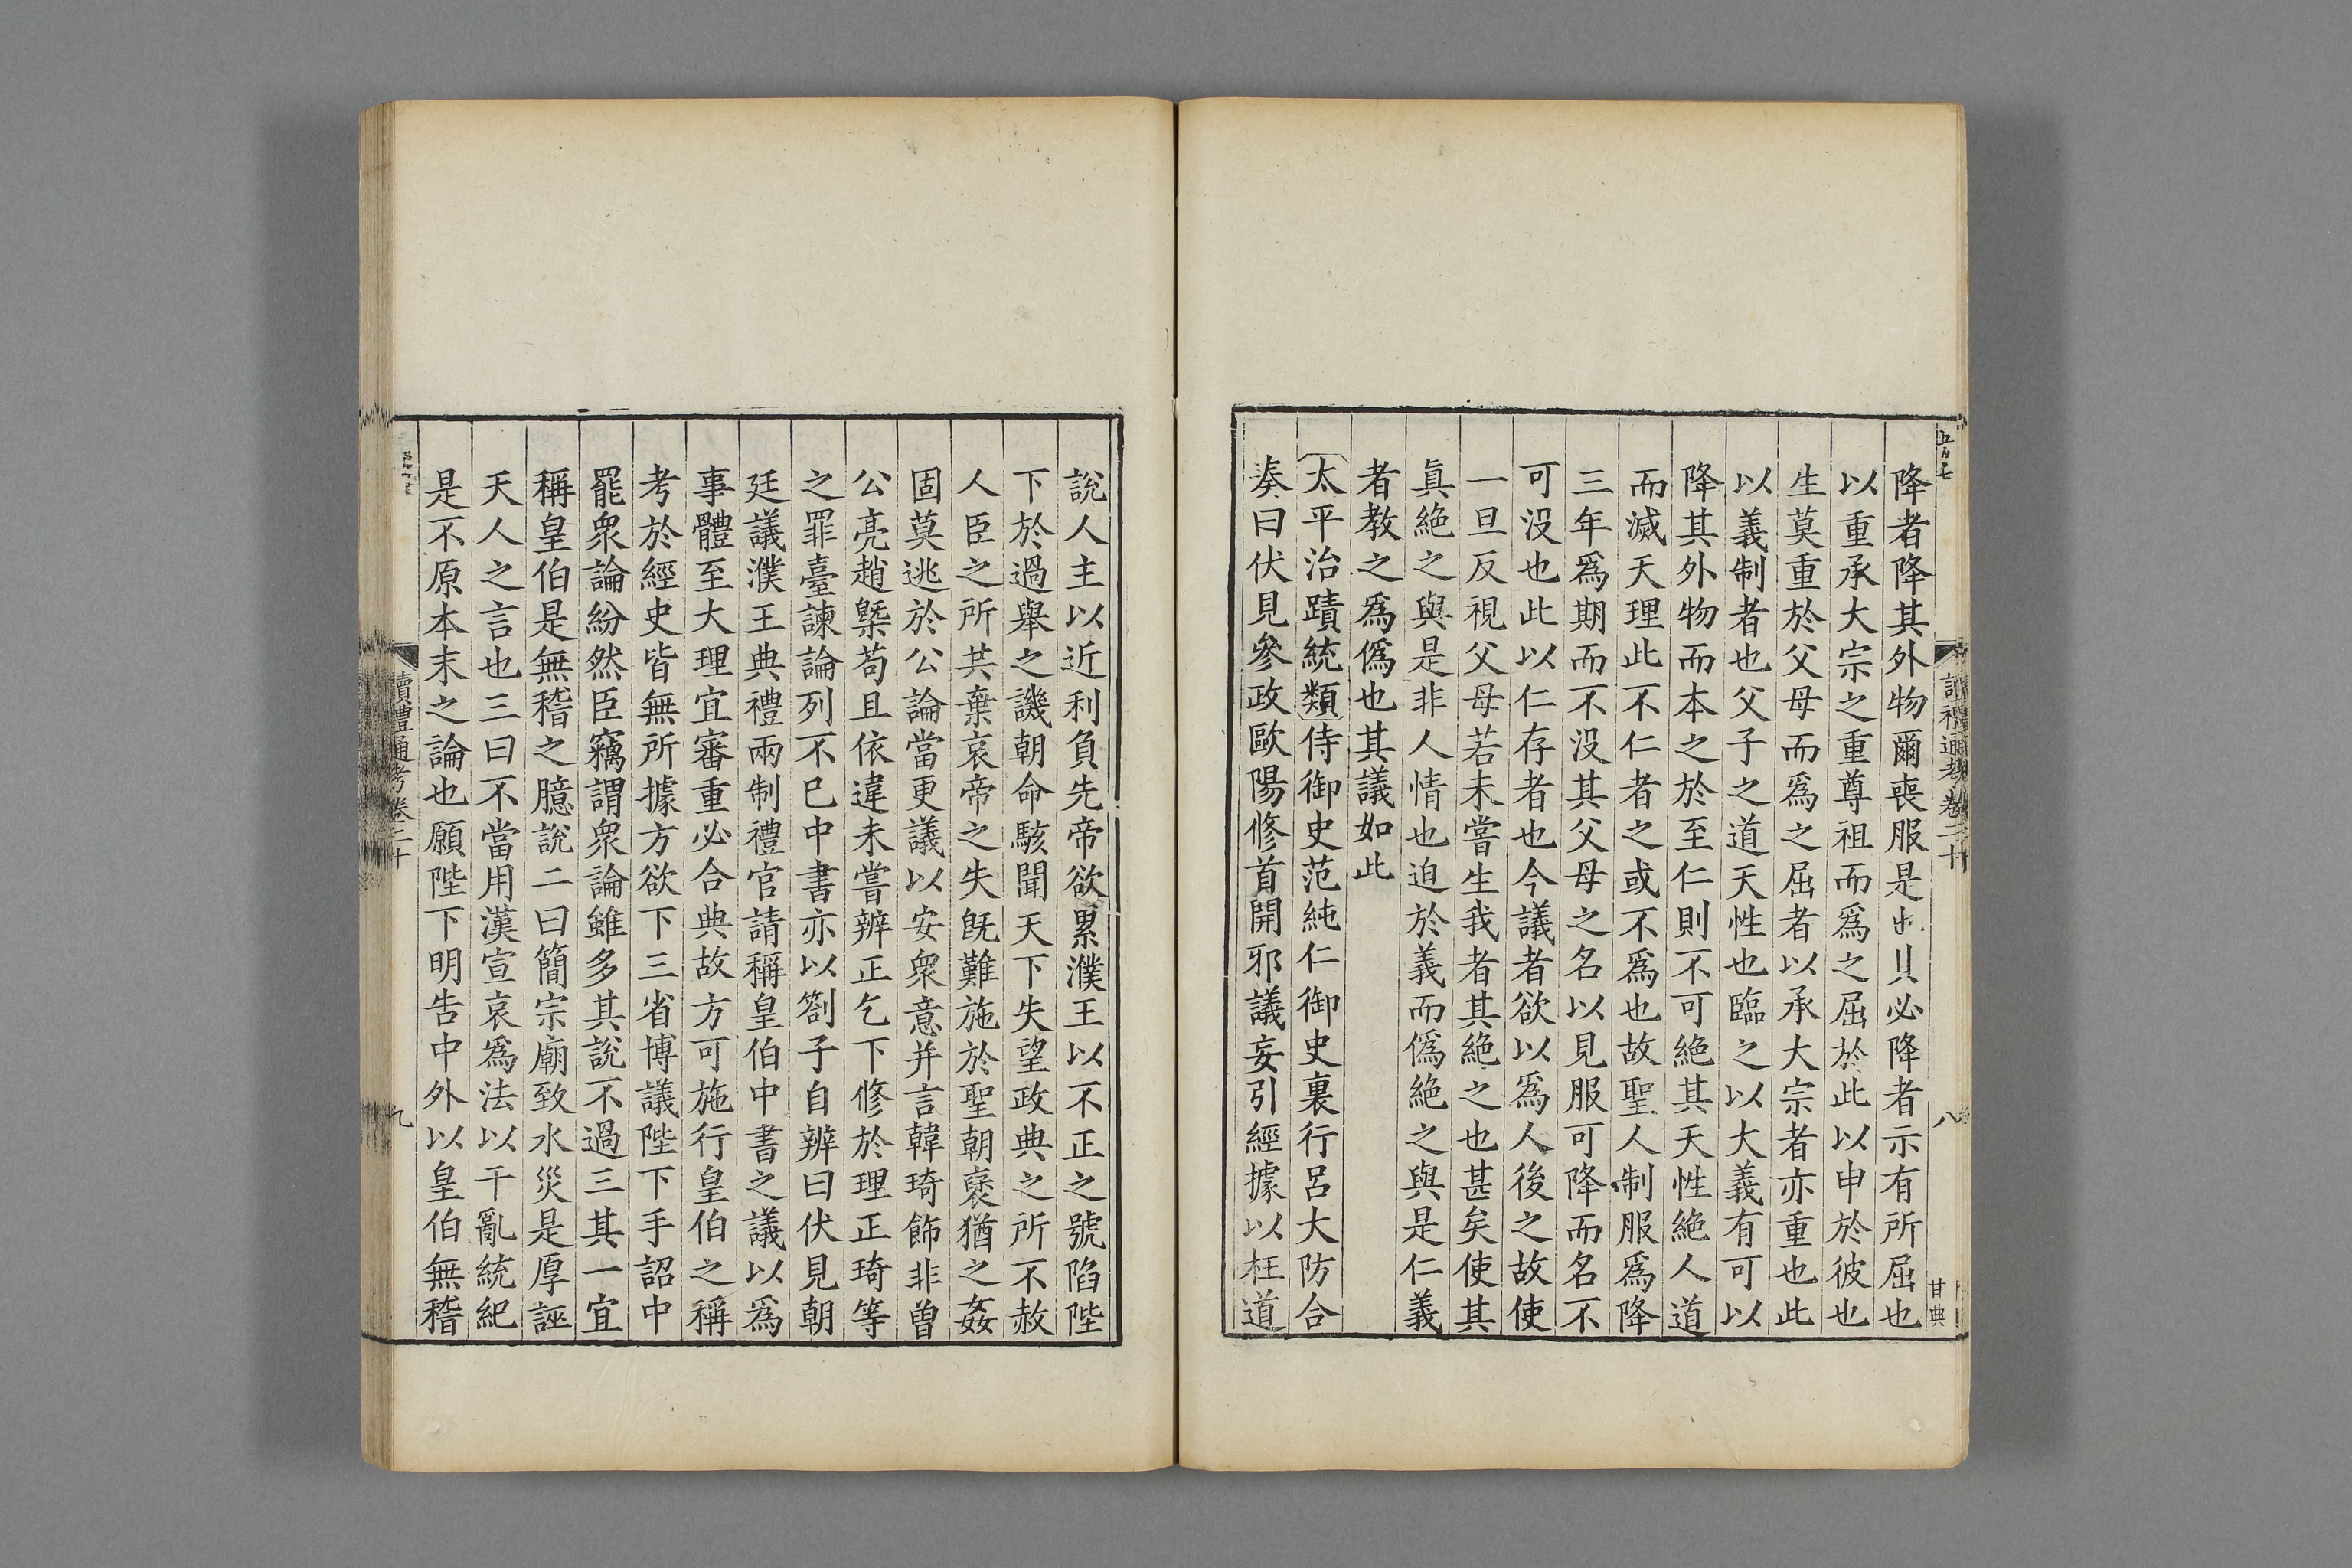 降者降其外物爾喪服是也其必降者示有所屈也
以重承大宗之重尊祖而爲之屈於此以申於彼也
生莫重於父母而爲之屈者以承大宗者亦重也此
以義制者也父子之道天性也臨之以大義有可以
降其外物而本之於至仁則不可絶其天性絶人道
而滅天理此不仁者之或不爲也故聖人制服爲降
三年爲期而不没其父母之名以見服可降而名不
可没也此以仁存者也今議者欲以爲人後之故使
一旦反視父母若未嘗生我者其絶之也甚矣使其
眞絶之與是非人情也迫於義而僞絶之與是仁義
者教之爲僞也其議如此
太平治蹟統類侍御史范純仁御史裏行呂大防合
奏曰伏見參政歐陽修首開邪議妄引經據以枉道
讀禮通考卷二十
八
甘典
説人主以近利負先帝欲累濮王以不正之號陷陛
下於過舉之譏朝命駭聞天下失望政典之所不赦
人臣之所共棄哀帝之失旣難施於聖朝褒猶之姦
固莫逃於公論當更議以安衆意并言韓琦飾非曾
公亮趙槩苟且依違未嘗辨正乞下修於理正琦等
之罪臺諫論列不已中書亦以劄子自辨曰伏見朝
廷議濮王典禮兩制禮官請稱皇伯中書之議以爲
事體至大理宜審重必合典故方可施行皇伯之稱
考於經史皆無所據方欲下三省博議陛下手詔中
罷衆論紛然臣竊謂衆論雖多其說不過三其一宜
稱皇伯是無稽之臆說二曰簡宗廟致水災是厚誣
天人之言也三曰不當用漢宣哀爲法以干亂統紀
是不原本末之論也願陛下明告中外以皇伯無稽
讀禮通考卷二十
九